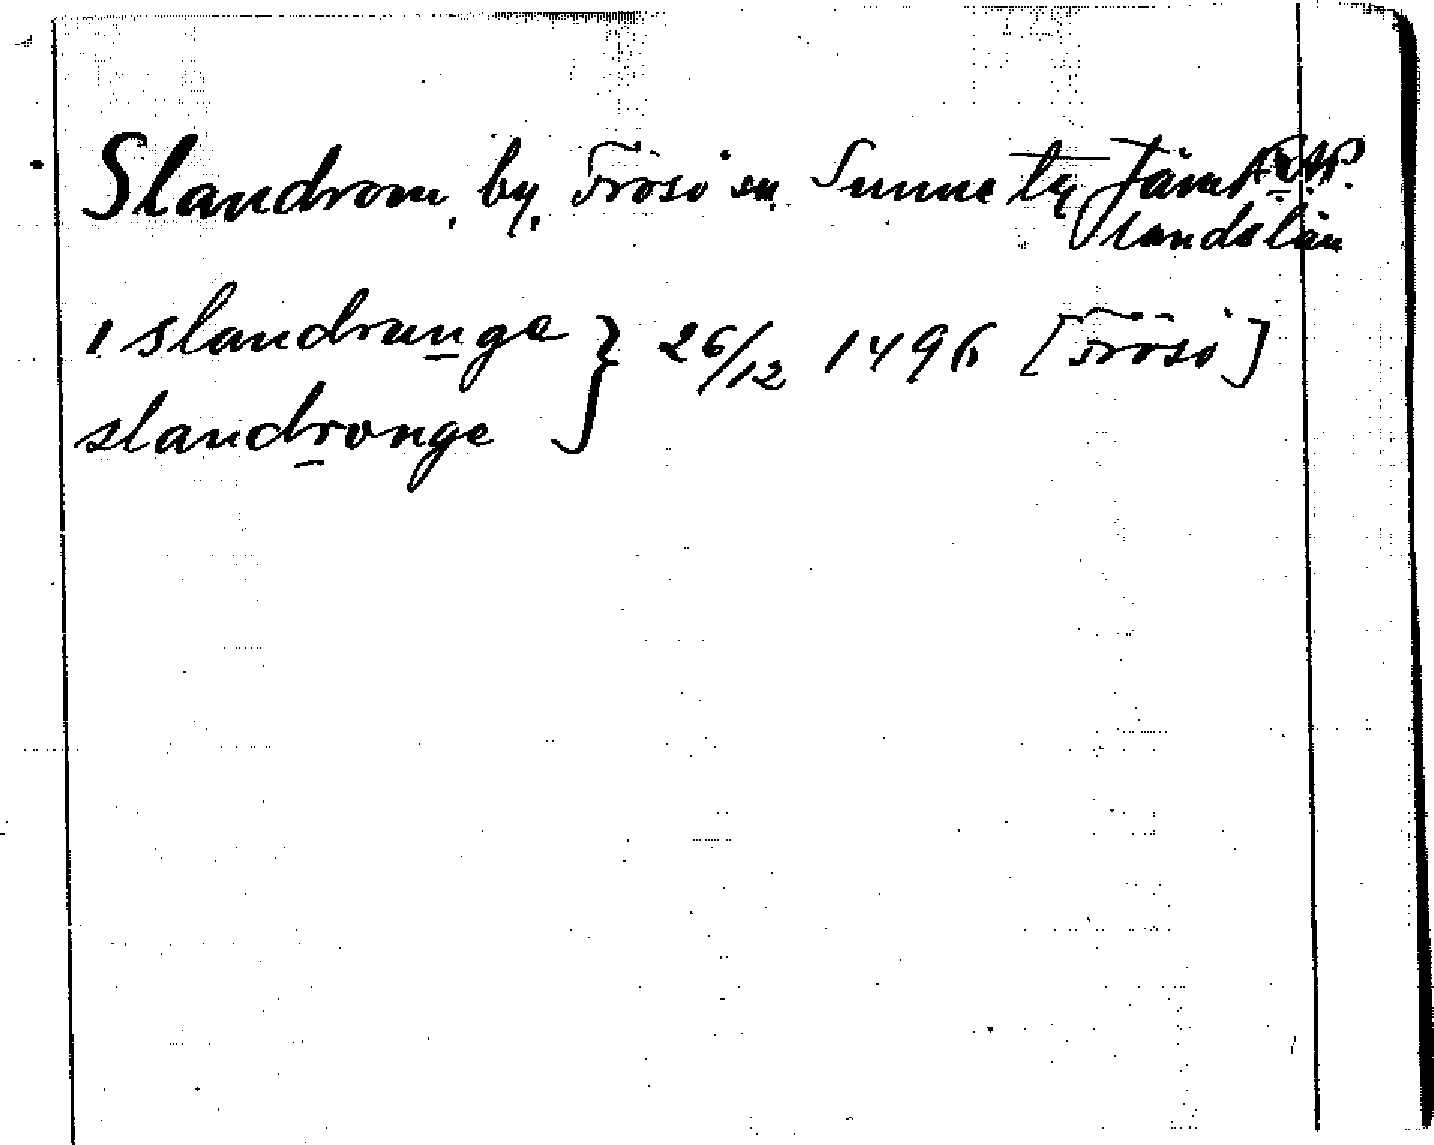 Slandrom, by, Frösö sn Sunne tg Jämt
landslän
1 slandrunge } 26/12 1496 [Frösö]
slandronge